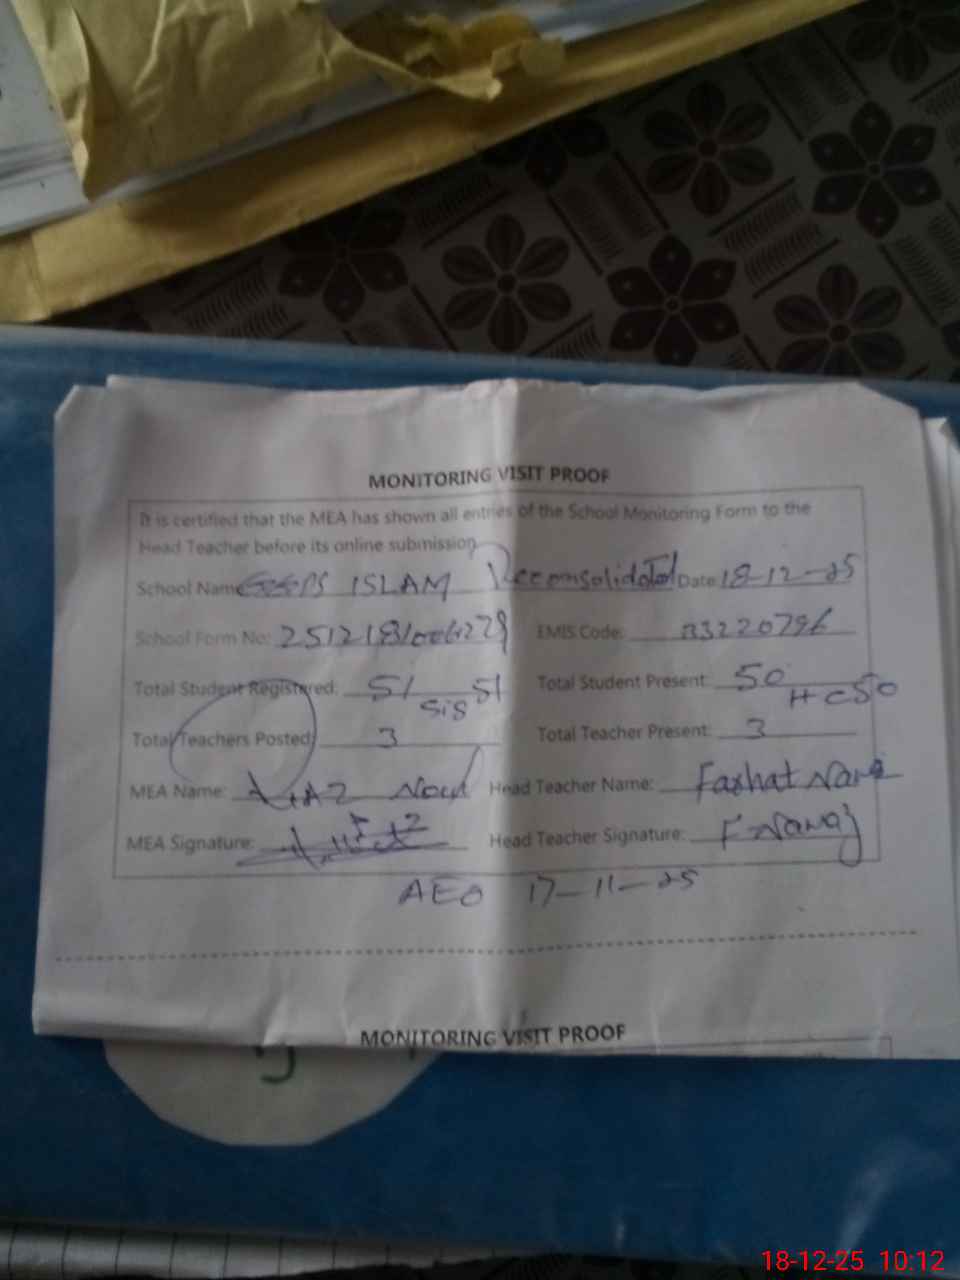 MONITORING VISIT PROOF
It is certified that the MEA has shown all entries of the School Monitoring Form to the
Head Teacher before its online submission
School Name ISLAM Date: 18-12-25
School Form No: EMIS Code:
Total Student Registered: 51 SIS 51 Total Student Present: 50 HC 50
Total Teachers Posted: 3 Total Teacher Present: 3
MEA Name: Head Teacher Name: Farhat
MEA Signature: Head Teacher Signature:
AEO 17-11-25
MONITORING VISIT PROOF
18-12-25 10:12